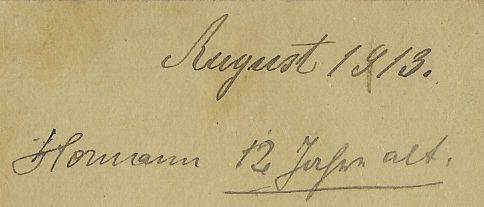 August 1913.
Hormann 12 Jahre alt.